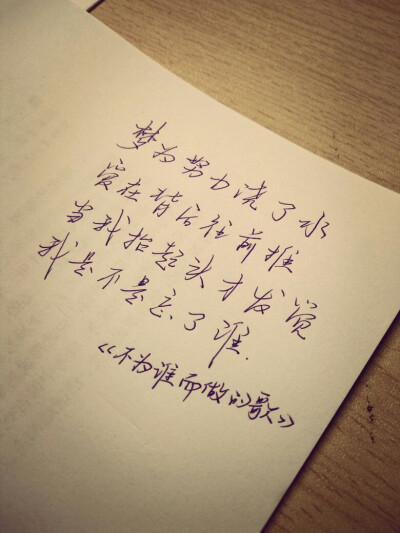 梦为努力浇了水
爱在背后往前推
当我抬起头才发觉
我是不是忘了谁.
《不为谁而做的歌》